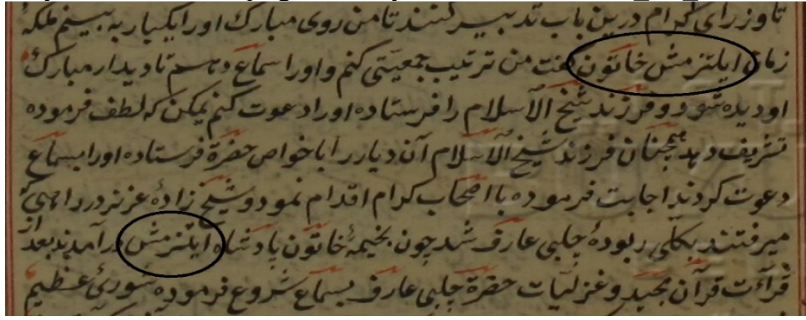 تا وزرای کرام درین باب تدبیر کنند تا من روی مبارک اورا یکبار به بینم ملکهٔ
زمان ایلتزمش خاتون گفت من ترتیب جمعیتی کنم و اورا سماع دهم تا دیدار مبارک
او دیده شود و فرزند شیخ الاسلام را فرستاده اورا دعوت کنم یمکن که لطف فرموده
تشریف دهد همچنان فرزند شیخ الاسلام آن دیار را با خواص حضرة فرستاده اورا بسماع
دعوت کردند اجابت فرموده با اصحاب کرام اقدام نمود و شیخ زادهٔ عزیز در راهی که
میرفتند بکلی ربودهٔ چلبی عارف شد چون بخیمهٔ خاتون پادشاه ایلتزمش درآمدند بعد از
قرآءت قرآن مجید و غزلیات حضرة چلبی عارف بسماع شروع فرموده شوری عظیم